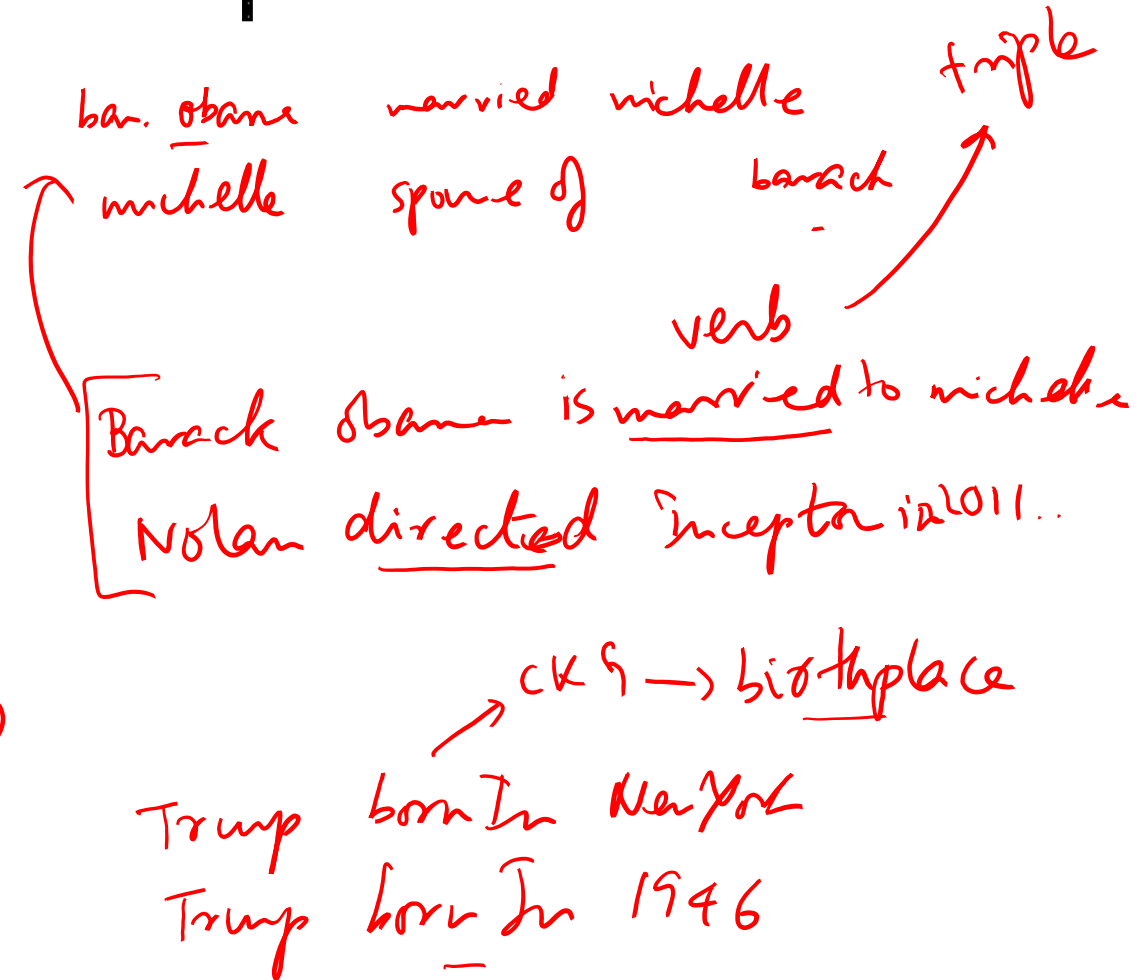 triple
bar. obama married michelle
michelle spouse of barack
verb
Barack obama is married to michelle
Nolan directed inception in 2011..
CKG → birthplace
Trump bornIn New York
Trump bornIn 1946